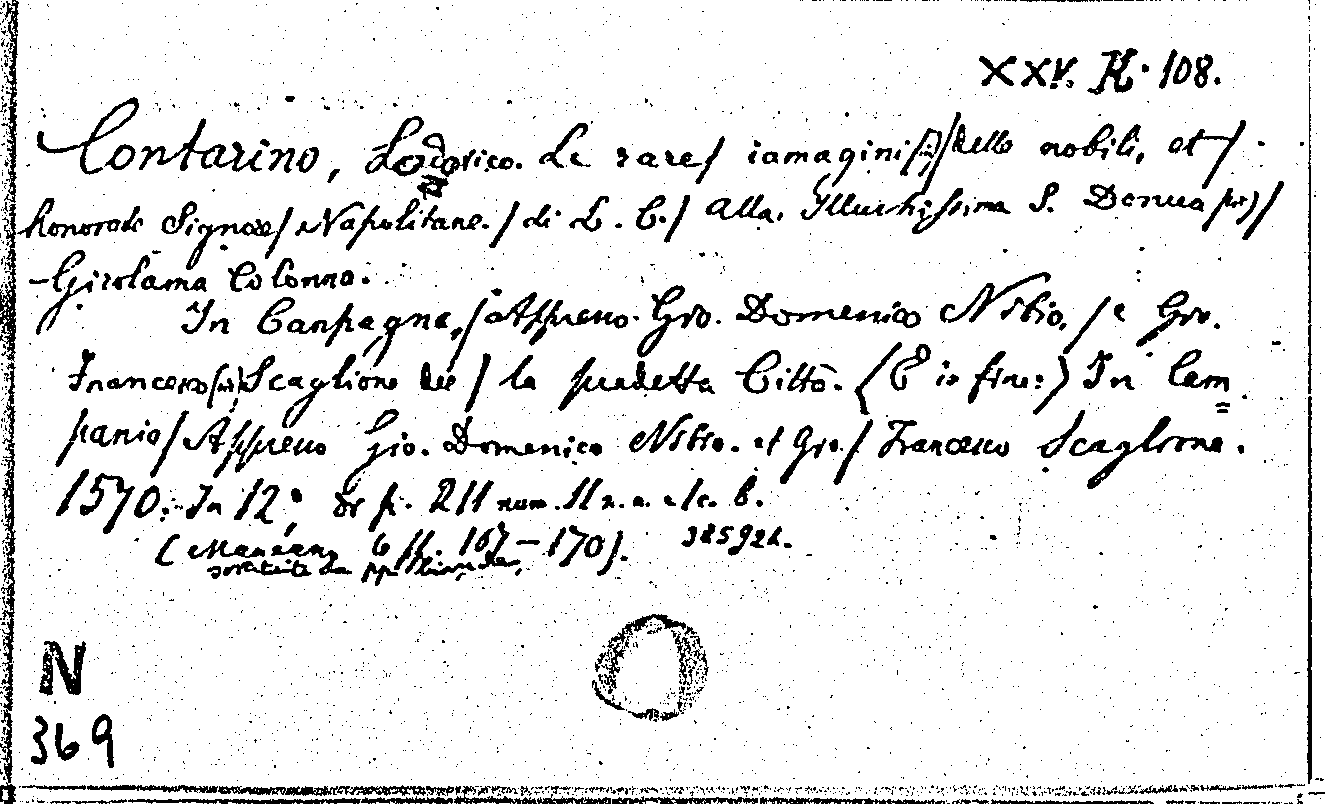 XXV. K. 108.
Contarino, Lodovico. Le rare/ iamagini (sic)/ delle nobili, et/
honorate Signore/ Napolitane./ di L. C./ Alla. Illustrissima S. Donna (sic)/
Girolama Colonna.
In Campagna,/ Appresso. Gio. Domenico Nibio,/ e Gio.
Francesco (sic) Scaglione del/ la predetta Città. (E in fine:) In Cam=
pania/ Appresso Gio. Domenico Nibio. et Gio./ Francesco Scaglione.
1570. In 12°, di p. 211 num. 11 n. n. e 1 c. b.
(Mancano le pp. 167-170).
sostituite da pp. bianche,
N
369